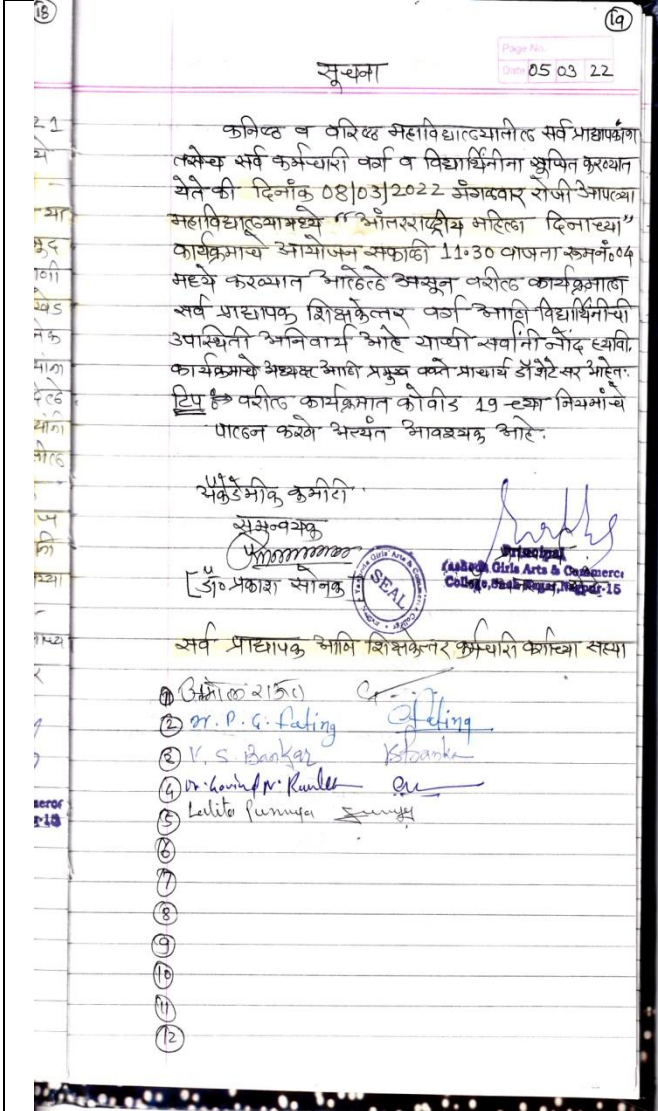 18
19
Page No.
Date 05 03 22
सूचना
कनिष्ठ व वरिष्ठ महाविद्यालयातील सर्व प्राध्यापकांना
तसेच सर्व कर्मचारी वर्ग व विद्यार्थिनींना सूचित करण्यात
येते की दिनांक 08/03/2022 मंगळवार रोजी आपल्या
महाविद्यालयामध्ये "आंतरराष्ट्रीय महिला दिनाच्या"
कार्यक्रमाचे आयोजन सकाळी 11.30 वाजता रूम नं. 04
मध्ये करण्यात आलेले असून वरील कार्यक्रमाला
सर्व प्राध्यापक शिक्षकेत्तर वर्ग आणि विद्यार्थिनींची
उपस्थिती अनिवार्य आहे याची सर्वांनी नोंद घ्यावी.
कार्यक्रमाचे अध्यक्ष आणि प्रमुख वक्ते प्राचार्य डॉ शेटे सर आहेत.
टिप वरील कार्यक्रमात कोवीड 19 च्या नियमांचे
पालन करणे अत्यंत आवश्यक आहे.
अकेडेमीक कमीटी
समन्वयक
[डॉ. प्रकाश सोनक]
SEAL
Principal
Yashoda Girls Arts & Commerce
College, Nagpur-15
सर्व प्राध्यापक आणि शिक्षकेत्तर कर्मचारी वर्गाच्या सह्या
1
2 Dr. P. G. Fating
3 V. S. Bankar
4
5 Lalita
6
7
8
9
10
11
12